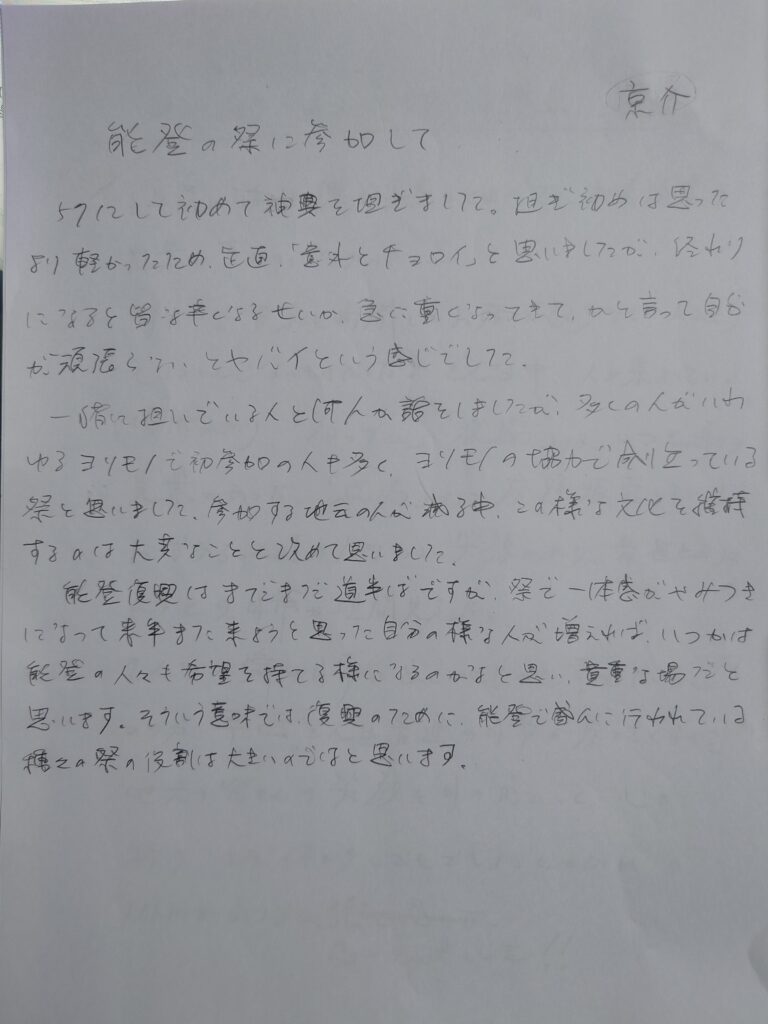 京介
能登の祭に参加して
57にして初めて神輿を担ぎました。担ぎ初めは思った
より軽かったため、正直、「意外とチョロイ」と思いましたが、終わり
になると皆は辛くなるせいか、急に重くなってきて、かと言って自分
が頑張らないとヤバイという感じでした。
一緒に担いでいる人と何人か話をしましたが、多くの人がいわ
ゆるヨリモノで初参加の人も多く、ヨリモノの協力で成り立っている
祭と思いました。参加する地元の人が減る中、この様な文化を維持
するのは大変なことと改めて思いました。
能登復興はまだまだ道半ばですが、祭で一体感がやみつき
になって来年また来ようと思った自分の様な人が増えれば、いつかは
能登の人々も希望を持てる様になるのかなと思い、貴重な場だと
思います。そういう意味では、復興のために、能登で盛んに行われている
種々の祭の役割は大きいのではと思います。